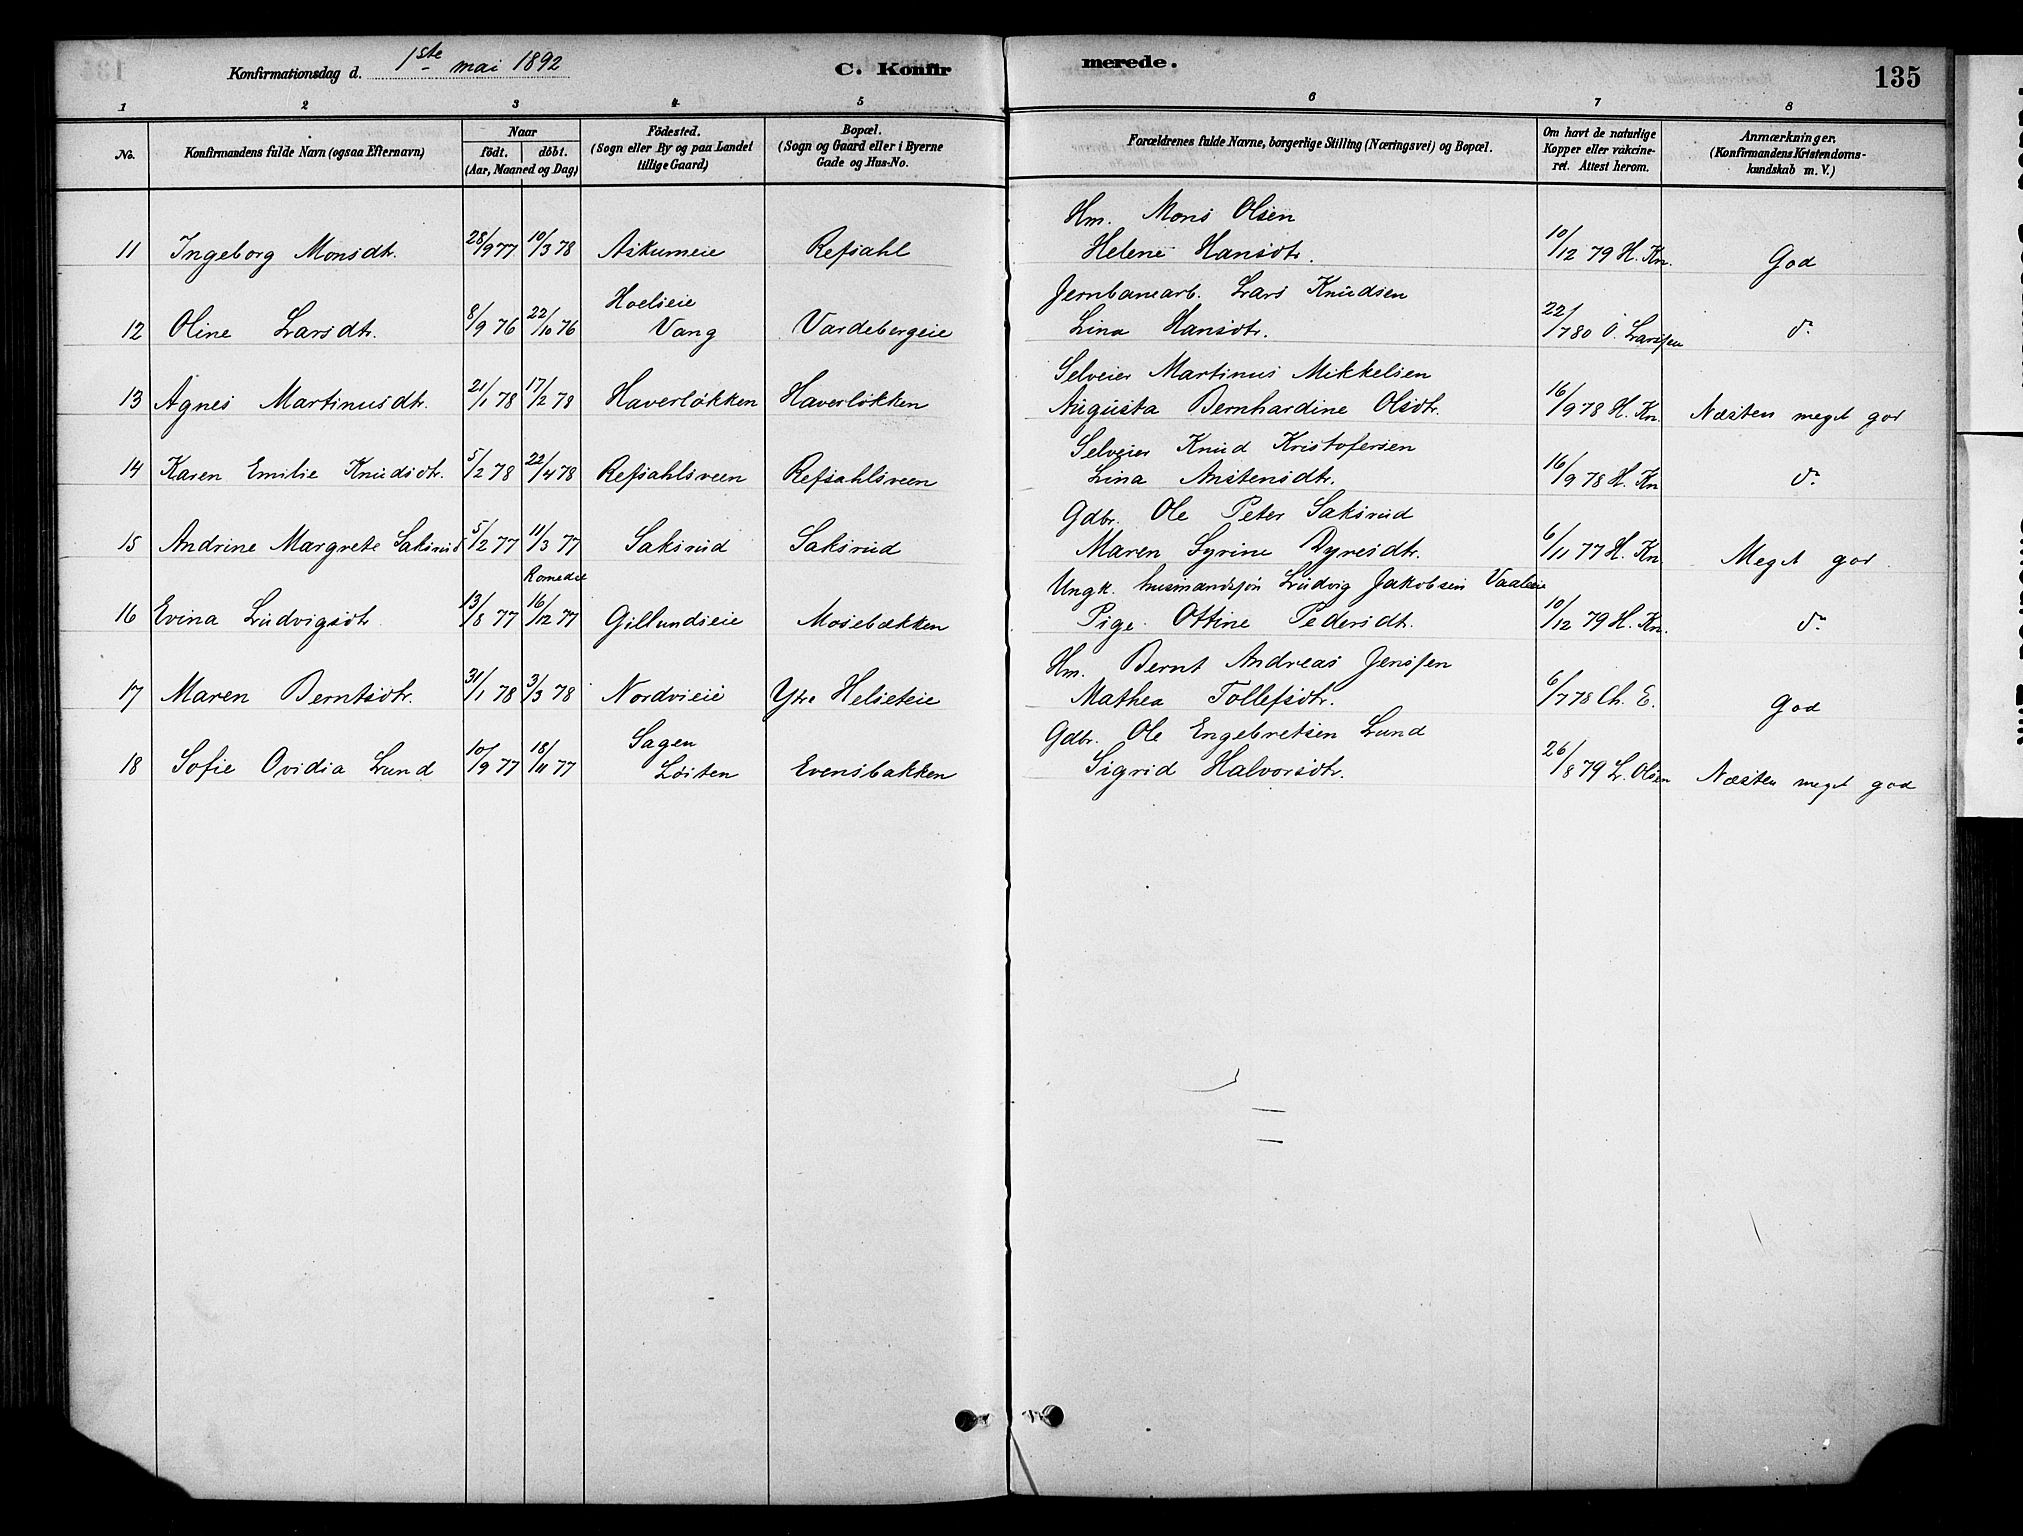 Konfirmationsdag d. 1ste mai 1892
C. Konfirmerede.
135
1 2 3 4 5 6 7 8
No.
Konfirmandens fulde Navn (ogsaa Efternavn)
Naar
födt. döbt.
(Aar, Maaned og Dag)
Födested.
(Sogn eller By og paa Landet
tillige Gaard)
Bopæl.
(Sogn og Gaard eller i Byerne
Gade og Hus-No.
Forældrenes fulde Navne, borgerlige Stilling (Næringsvei) og Bopæl.
Om havt de naturlige
Kopper eller vakcine-
ret. Attest herom.
Anmærkninger.
(Konfirmandens Kristendoms-
kundskab m. V.)
Hm. Mons Olsen
11 Ingeborg Monsdtr. 28/9 77 10/3 78 Askumeie Refsahl Helene Hansdtr. 10/12 79 H. Kn. God
Hoelseie Jernbanearb. Lars Knudsen
12 Oline Larsdtr. 8/9 76 22/10 76 Vang Vardebergeie Lina Hansdtr. 22/7 80 O. Larssen do
Selveier Martinus Mikkelsen
13 Agnes Martinusdtr. 21/1 78 17/2 78 Haverløkken Haverløkken Augusta Bernhardine Olsdtr. 16/9 78 H. Kn. Næsten meget god
Selveier Knud Kristofersen
14 Karen Emilie Knudsdtr. 5/2 78 22/4 78 Refsahlsveen Refsahlsveen Lina Anstensdtr. 16/9 78 H. Kn do
Gdbr. Ole Peter Saksrud
15 Andrine Margrete Saksrud 5/2 77 11/3 77 Saksrud Saksrud Maren Syrine Dyresdtr. 6/11 77 H. Kn. Meget god.
Romedal Ungk. husmandssøn Ludvig Jakobsen Vaaleie
16 Evina Ludvigsdtr 13/8 77 16/12 77 Gillundseie Mosebækken Pige Ottine Pedersdtr. 10/12 79 H. Kn. do
Hm. Bernt Andreas Jenssen
17 Maren Berntsdtr. 31/1 78 3/3 78 Nordvieie Ytre Helseteie Mathea Tollefsdtr. 6/7 78 Ch. E. God
Sagen Gdbr. Ole Engebretsen Lund
18 Sofie Ovidia Lund 10/9 77 18/11 77 Löiten Evensbakken Sigrid Halvorsdtr. 26/8 79 Lr. Olsen Næsten meget god